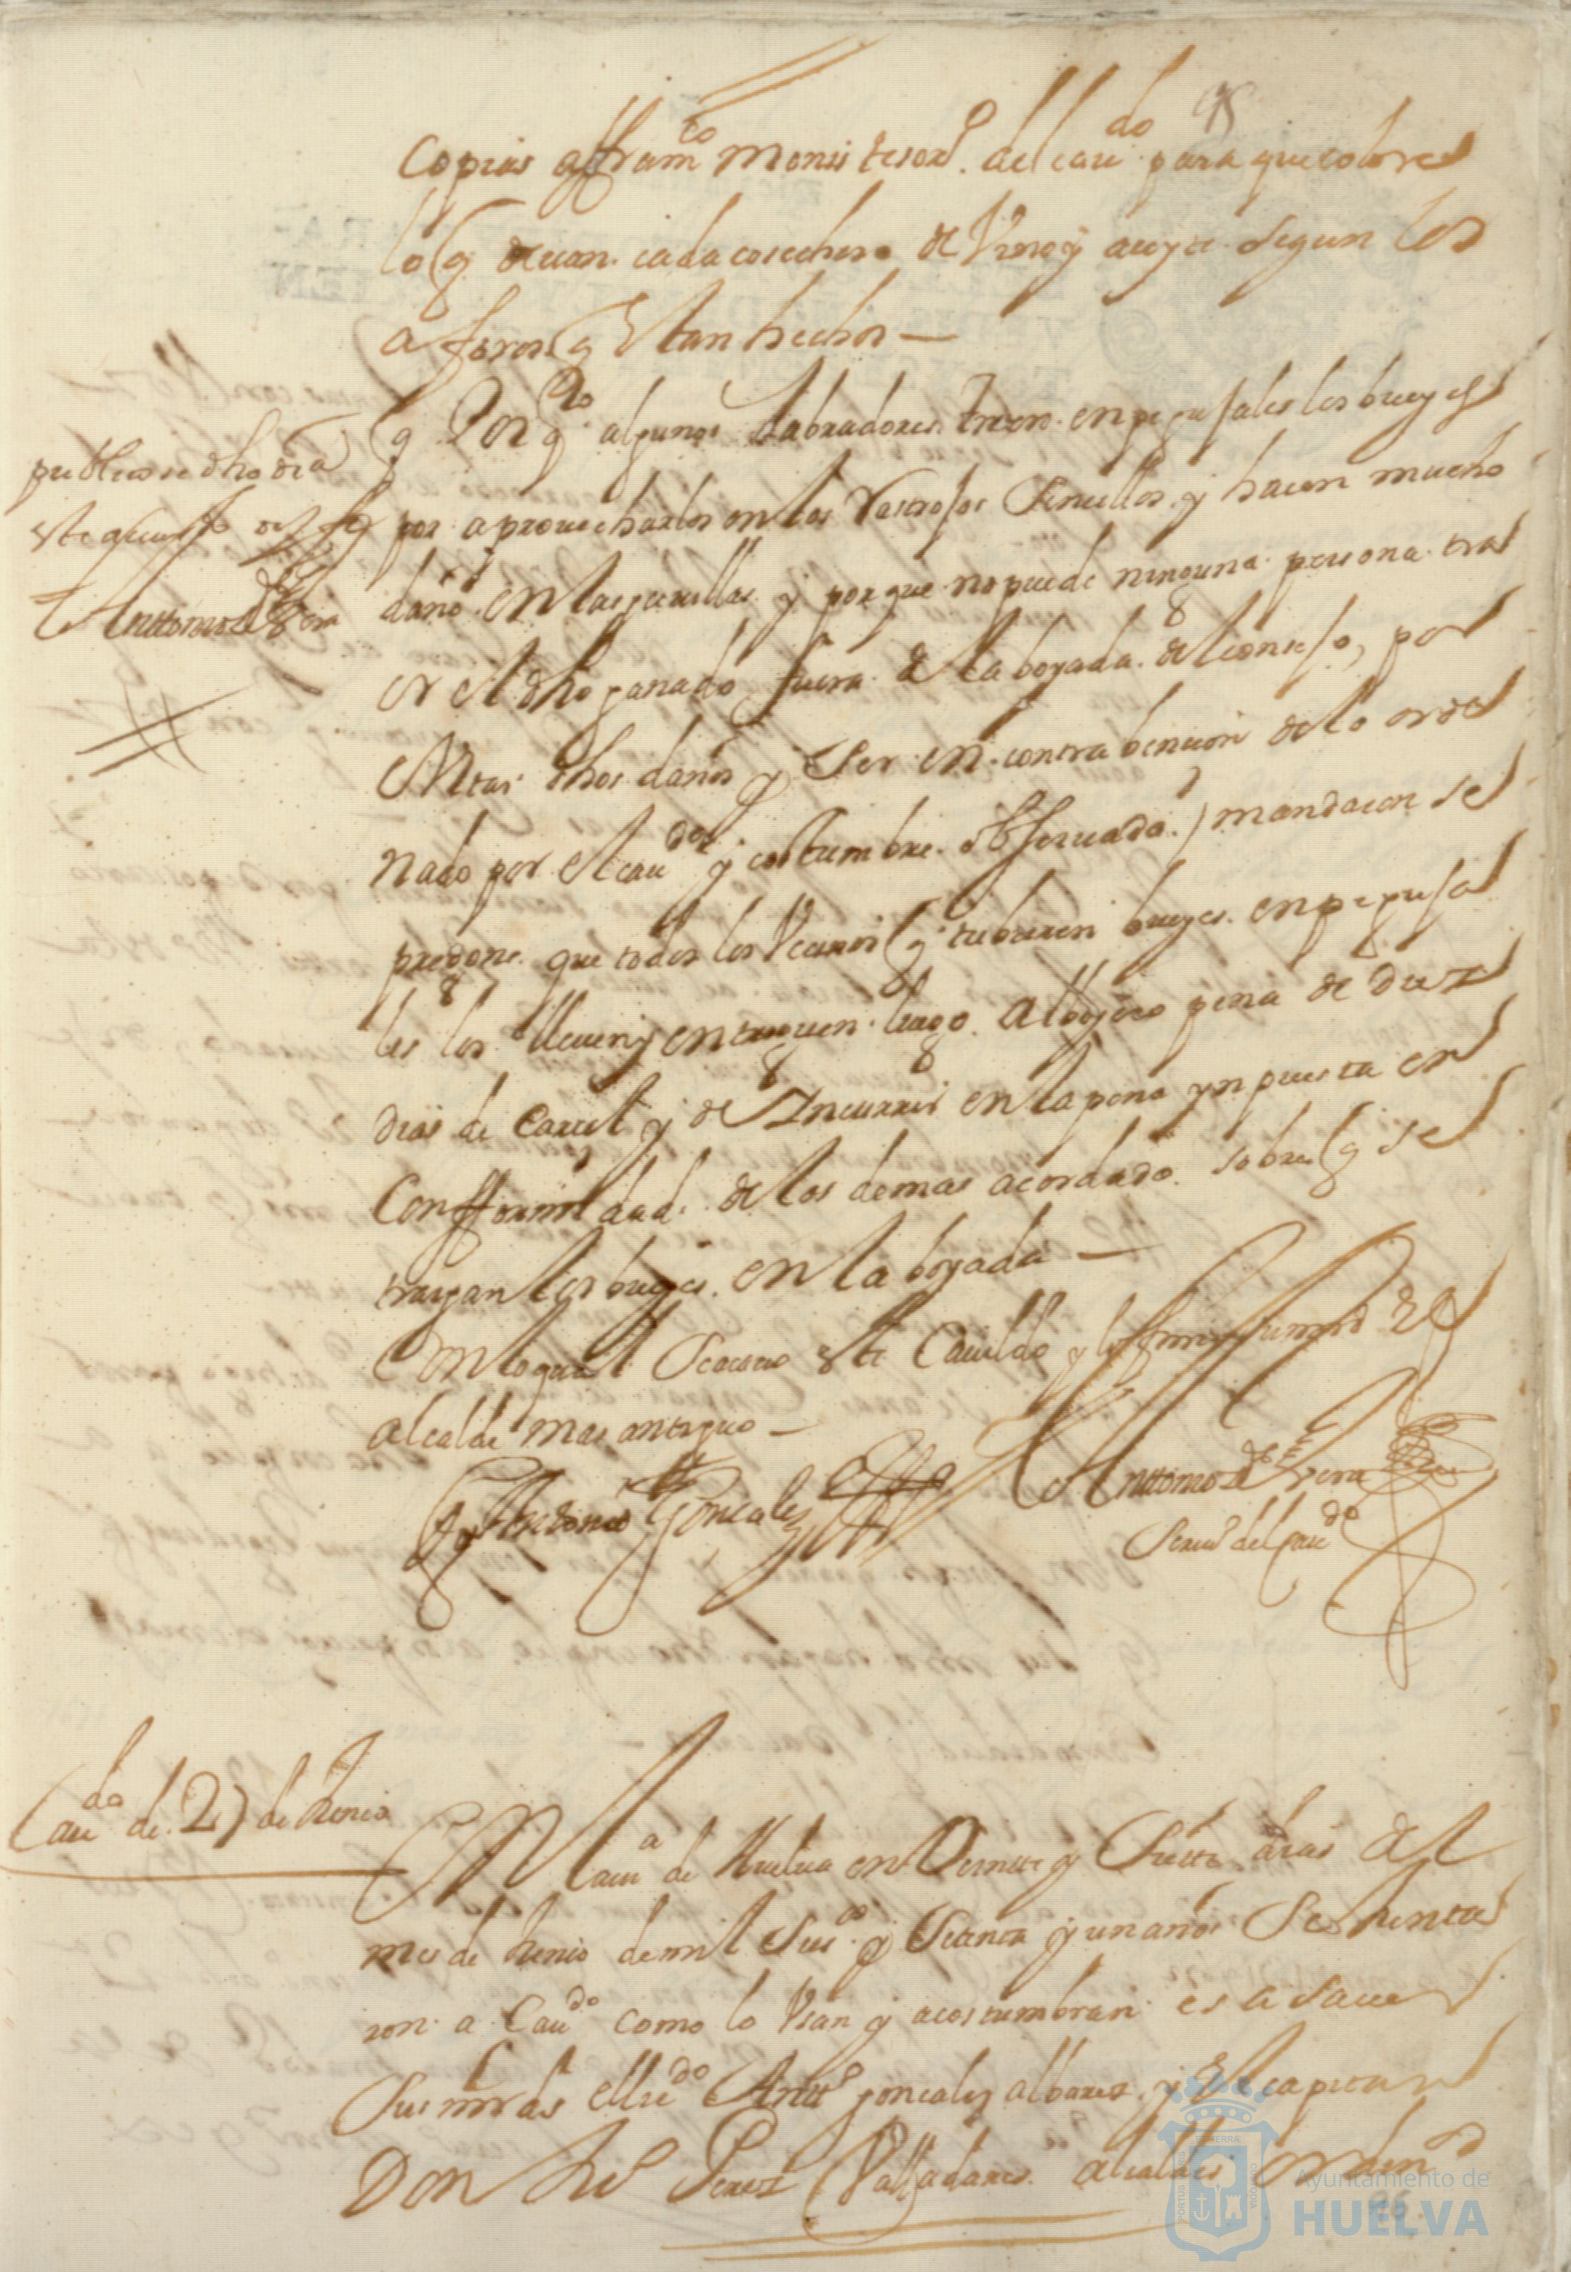 copias a fran.co monis tesor.o del cau.do para que cobre
lo q deuan cada cosechero de Vino y aseyte segun los
aforos q estan hechos —
q Por q.to algunos labradores traen en pegujales los bueyes
por aprouecharlos en los rastrojos senсillos y hacen mucho
daño en las gauillas y por que no puede ninguna persona tra
er el dho ganado fuera de la boyada del consejo, por
euitar dhos daños y ser en contrabencion de lo orde
nado por el cau.do y costumbre obseruada) mandaron se
pregone que todos los Vecinos q tubieren bueyes en pegujа
les los lleuen y entreguen luego al boyero pena de diez
dias de carcel y de Incurrir en la pena ynpuesta en
Confformidad de los demas acordado sobre q se
traygan los bueyes en la boyada —
Con lo qual se cerro este Cauildo y lo firmo su md el
alcalde mas antiguo —
publicose dho dia
este
Antonio de Vera
Antonio Gonсalez
Antonio de Vera
Scriu.o del Cau.do
Cau.do de 27 de Junio
En la uill.a de Huelua en Veinte y Siete dias del
mes de Junio de mil Seis.os y Setenta y un años Se Junta
ron a Cau.do como lo Vsan y acostumbran es a sauer
Sus mrds el liz.do Ant.o gonсalez albarez y El capitan
Don Ju.o Perez Valladares alcaldes ordin
Ayuntamiento de
HUELVA